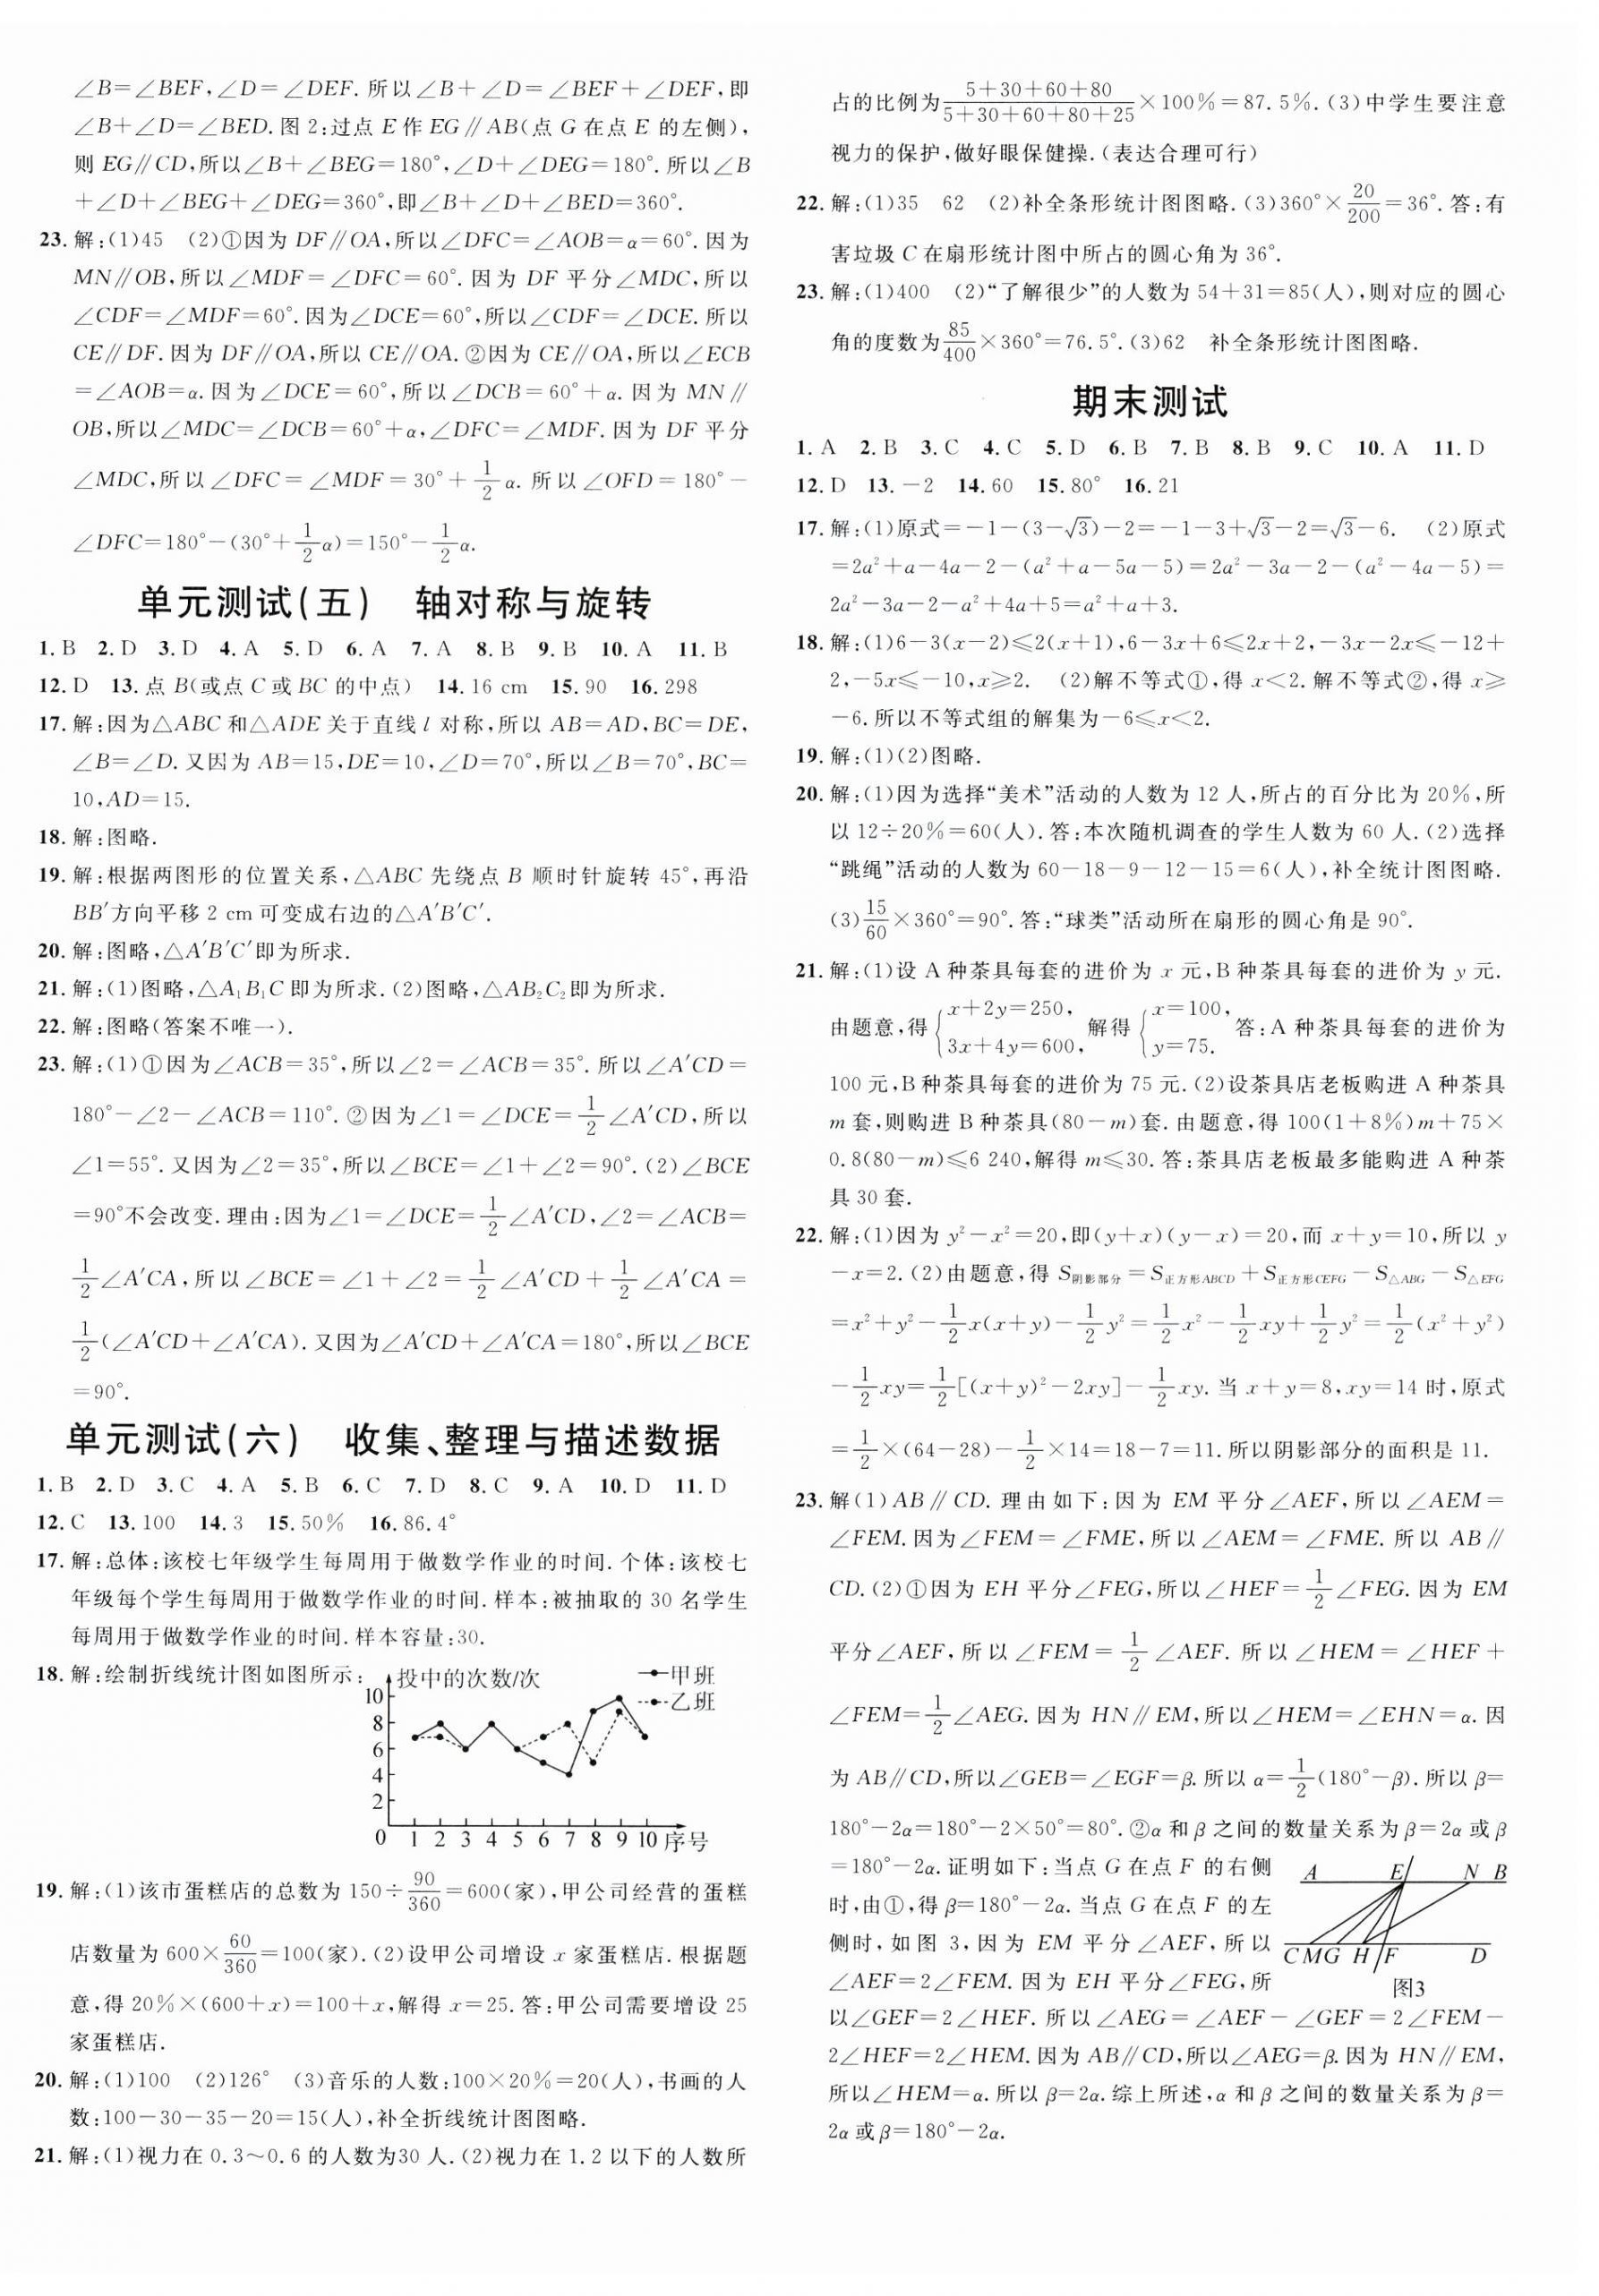 ∠B=∠BEF,∠D=∠DEF.所以∠B+∠D=∠BEF+∠DEF,即
∠B+∠D=∠BED.图2:过点E作EG∥AB(点G在点E的左侧),
则EG∥CD,所以∠B+∠BEG=180°,∠D+∠DEG=180°.所以∠B
+∠D+∠BEG+∠DEG=360°,即∠B+∠D+∠BED=360°.
23.解:(1)45 (2)①因为DF∥OA,所以∠DFC=∠AOB=α=60°.因为
MN∥OB,所以∠MDF=∠DFC=60°.因为DF平分∠MDC,所以
∠CDF=∠MDF=60°.因为∠DCE=60°,所以∠CDF=∠DCE.所以
CE∥DF.因为DF∥OA,所以CE∥OA.②因为CE∥OA,所以∠ECB
=∠AOB=α.因为∠DCE=60°,所以∠DCB=60°+α.因为MN∥
OB,所以∠MDC=∠DCB=60°+α,∠DFC=∠MDF.因为DF平分
∠MDC,所以∠DFC=∠MDF=30°+1/2α.所以∠OFD=180°-
∠DFC=180°-(30°+1/2α)=150°-1/2α.
单元测试(五) 轴对称与旋转
1.B 2.D 3.D 4.A 5.D 6.A 7.A 8.B 9.B 10.A 11.B
12.D 13.点B(或点C或BC的中点) 14.16 cm 15.90 16.298
17.解:因为△ABC和△ADE关于直线l对称,所以AB=AD,BC=DE,
∠B=∠D.又因为AB=15,DE=10,∠D=70°,所以∠B=70°,BC=
10,AD=15.
18.解:图略.
19.解:根据两图形的位置关系,△ABC先绕点B顺时针旋转45°,再沿
BB′方向平移2 cm可变成右边的△A′B′C′.
20.解:图略,△A′B′C′即为所求.
21.解:(1)图略,△A₁B₁C即为所求.(2)图略,△AB₂C₂即为所求.
22.解:图略(答案不唯一).
23.解:(1)①因为∠ACB=35°,所以∠2=∠ACB=35°.所以∠A′CD=
180°-∠2-∠ACB=110°.②因为∠1=∠DCE=1/2∠A′CD,所以
∠1=55°.又因为∠2=35°,所以∠BCE=∠1+∠2=90°.(2)∠BCE
=90°不会改变.理由:因为∠1=∠DCE=1/2∠A′CD,∠2=∠ACB=
1/2∠A′CA,所以∠BCE=∠1+∠2=1/2∠A′CD+1/2∠A′CA=
1/2(∠A′CD+∠A′CA).又因为∠A′CD+∠A′CA=180°,所以∠BCE
=90°.
单元测试(六) 收集、整理与描述数据
1.B 2.D 3.C 4.A 5.B 6.C 7.D 8.C 9.A 10.D 11.D
12.C 13.100 14.3 15.50% 16.86.4°
17.解:总体:该校七年级学生每周用于做数学作业的时间.个体:该校七
年级每个学生每周用于做数学作业的时间.样本:被抽取的30名学生
每周用于做数学作业的时间.样本容量:30.
18.解:绘制折线统计图如图所示:
投中的次数/次
甲班
乙班
10
8
6
4
2
0 1 2 3 4 5 6 7 8 9 10 序号
19.解:(1)该市蛋糕店的总数为150÷90/360=600(家),甲公司经营的蛋糕
店数量为600×60/360=100(家).(2)设甲公司增设x家蛋糕店.根据题
意,得20%×(600+x)=100+x,解得x=25.答:甲公司需要增设25
家蛋糕店.
20.解:(1)100 (2)126° (3)音乐的人数:100×20%=20(人),书画的人
数:100-30-35-20=15(人),补全折线统计图图略.
21.解:(1)视力在0.3~0.6的人数为30人.(2)视力在1.2以下的人数所
占的比例为(5+30+60+80)/(5+30+60+80+25)×100%=87.5%.(3)中学生要注意
视力的保护,做好眼保健操.(表达合理可行)
22.解:(1)35 62 (2)补全条形统计图图略.(3)360°×20/200=36°.答:有
害垃圾C在扇形统计图中所占的圆心角为36°.
23.解:(1)400 (2)“了解很少”的人数为54+31=85(人),则对应的圆心
角的度数为85/400×360°=76.5°.(3)62 补全条形统计图图略.
期末测试
1.A 2.B 3.C 4.C 5.D 6.B 7.B 8.B 9.C 10.A 11.D
12.D 13.-2 14.60 15.80° 16.21
17.解:(1)原式=-1-(3-√3)-2=-1-3+√3-2=√3-6. (2)原式
=2a²+a-4a-2-(a²+a-5a-5)=2a²-3a-2-(a²-4a-5)=
2a²-3a-2-a²+4a+5=a²+a+3.
18.解:(1)6-3(x-2)≤2(x+1),6-3x+6≤2x+2,-3x-2x≤-12+
2,-5x≤-10,x≥2. (2)解不等式①,得x<2.解不等式②,得x≥
-6.所以不等式组的解集为-6≤x<2.
19.解:(1)(2)图略.
20.解:(1)因为选择“美术”活动的人数为12人,所占的百分比为20%,所
以12÷20%=60(人).答:本次随机调查的学生人数为60人.(2)选择
“跳绳”活动的人数为60-18-9-12-15=6(人),补全统计图图略.
(3)15/60×360°=90°.答:“球类”活动所在扇形的圆心角是90°.
21.解:(1)设A种茶具每套的进价为x元,B种茶具每套的进价为y元.
由题意,得{x+2y=250, 3x+4y=600, 解得{x=100, y=75. 答:A种茶具每套的进价为
100元,B种茶具每套的进价为75元.(2)设茶具店老板购进A种茶具
m套,则购进B种茶具(80-m)套.由题意,得100(1+8%)m+75×
0.8(80-m)≤6 240,解得m≤30.答:茶具店老板最多能购进A种茶
具30套.
22.解:(1)因为y²-x²=20,即(y+x)(y-x)=20,而x+y=10,所以y
-x=2.(2)由题意,得S阴影部分=S正方形ABCD+S正方形CEFG-S△ABG-S△EFG
=x²+y²-1/2x(x+y)-1/2y²=1/2x²-1/2xy+1/2y²=1/2(x²+y²)
-1/2xy=1/2[(x+y)²-2xy]-1/2xy.当x+y=8,xy=14时,原式
=1/2×(64-28)-1/2×14=18-7=11.所以阴影部分的面积是11.
23.解(1)AB∥CD.理由如下:因为EM平分∠AEF,所以∠AEM=
∠FEM.因为∠FEM=∠FME,所以∠AEM=∠FME.所以AB∥
CD.(2)①因为EH平分∠FEG,所以∠HEF=1/2∠FEG.因为EM
平分∠AEF,所以∠FEM=1/2∠AEF.所以∠HEM=∠HEF+
∠FEM=1/2∠AEG.因为HN∥EM,所以∠HEM=∠EHN=α.因
为AB∥CD,所以∠GEB=∠EGF=β.所以α=1/2(180°-β).所以β=
180°-2α=180°-2×50°=80°.②α和β之间的数量关系为β=2α或β
=180°-2α.证明如下:当点G在点F的右侧
时,由①,得β=180°-2α.当点G在点F的左
侧时,如图3,因为EM平分∠AEF,所以
∠AEF=2∠FEM.因为EH平分∠FEG,所
A E N B
C M G H F D
图3
以∠GEF=2∠HEF.所以∠AEG=∠AEF-∠GEF=2∠FEM-
2∠HEF=2∠HEM.因为AB∥CD,所以∠AEG=β.因为HN∥EM,
所以∠HEM=α.所以β=2α.综上所述,α和β之间的数量关系为β=
2α或β=180°-2α.